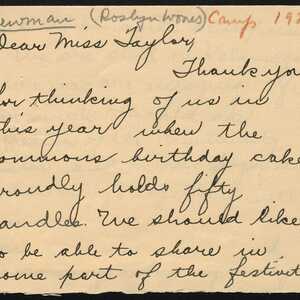 ewman (Roslyn Wones) Camp 19
Dear Miss Taylor,
Thank you
for thinking of us in
this year when the
ommons birthday cake
roudly holds fifty
andles. We should like
to be able to share in
some part of the festivit